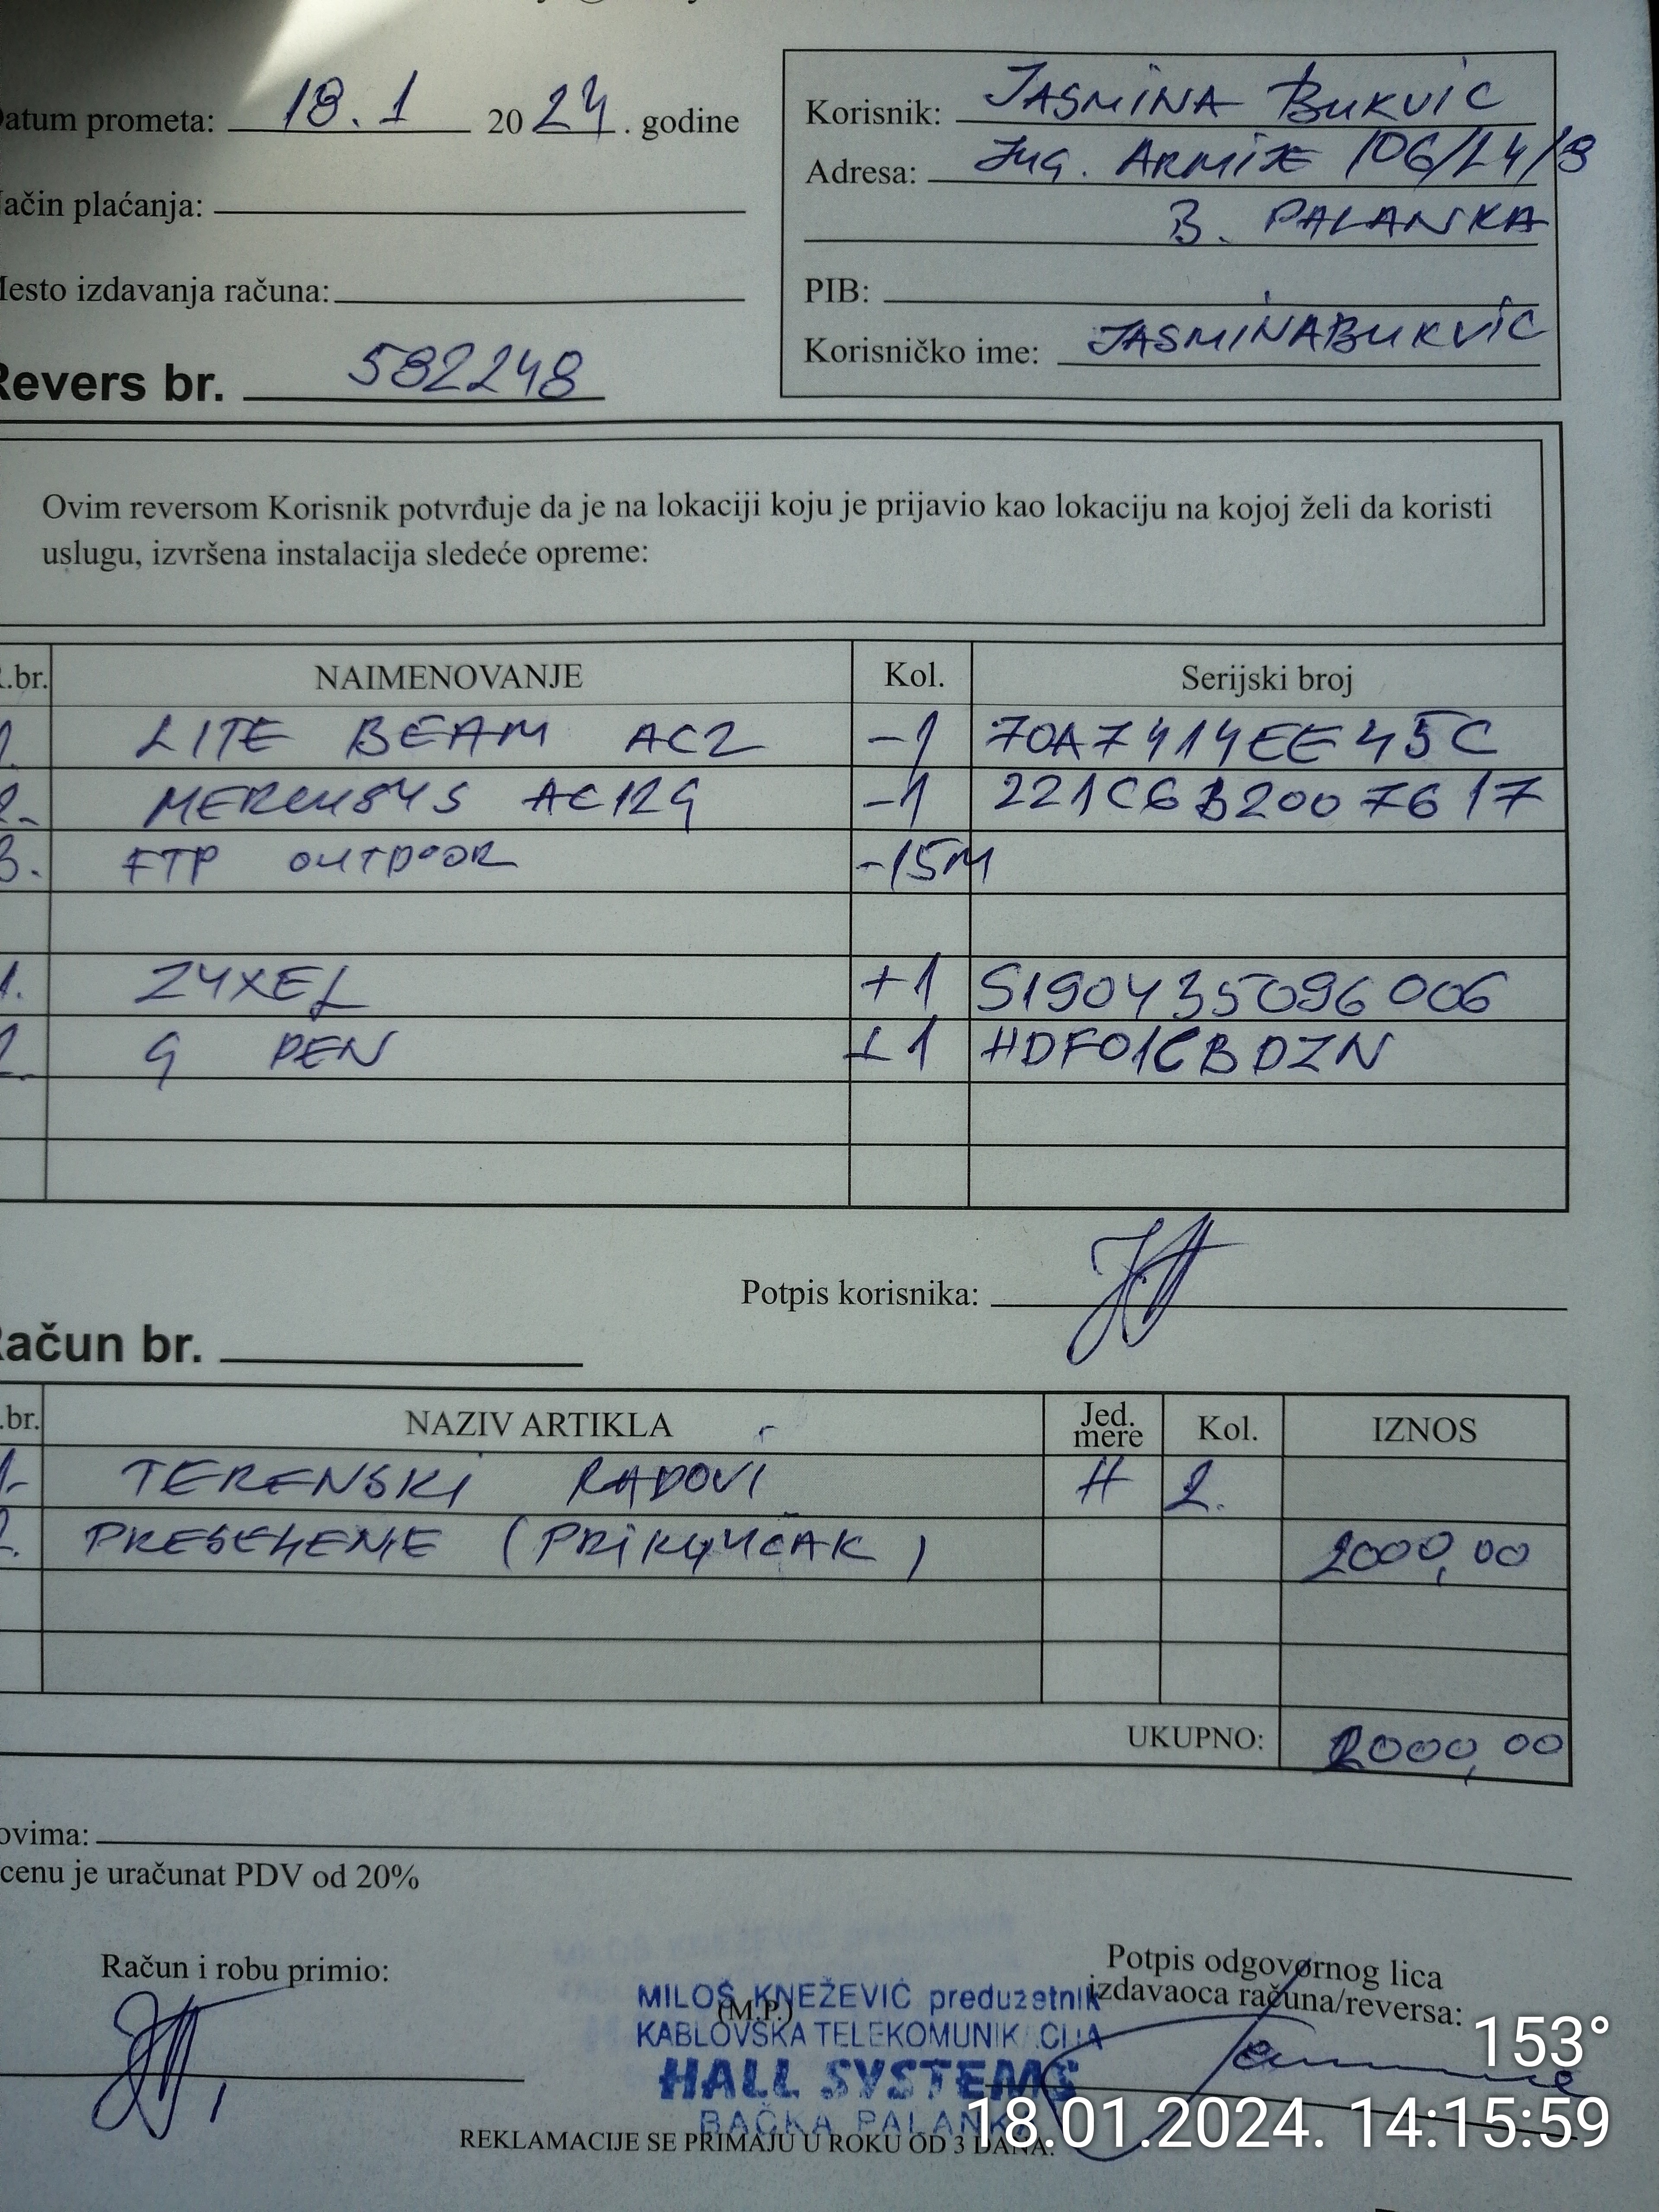 Datum prometa: 18.1 2024. godine
Način plaćanja:
Mesto izdavanja računa:
Revers br. 582248
Korisnik: JASMINA BUKVIĆ
Adresa: Jug. ARMIJE 106/L4/8
B. PALANKA
PIB:
Korisničko ime: JASMINABUKVIC
Ovim reversom Korisnik potvrđuje da je na lokaciji koju je prijavio kao lokaciju na kojoj želi da koristi
uslugu, izvršena instalacija sledeće opreme:
R.br. NAIMENOVANJE Kol. Serijski broj
1. LITE BEAM AC2 -1 70A7414EE45C
2. MERCUSYS AC12G -1 221C6B2007617
3. FTP OUTDOOR -15M
1. ZYXEL +1 S190435096006
2. G PEN +1 HDF01CBDZN
Potpis korisnika:
Račun br.
R.br. NAZIV ARTIKLA Jed. mere Kol. IZNOS
1. TERENSKI RADOVI H 2.
2. PRESELENJE (PRIKLJUČAK) 2000,00
UKUPNO: 2000,00
ovima:
cenu je uračunat PDV od 20%
Račun i robu primio:
(M.P.)
MILOŠ KNEŽEVIĆ preduzetnik
KABLOVSKA TELEKOMUNIKACIJA
HALL SYSTEMS
BAČKA PALANKA
Potpis odgovornog lica
izdavaoca računa/reversa:
REKLAMACIJE SE PRIMAJU U ROKU OD 3 DANA.
153°
18.01.2024. 14:15:59